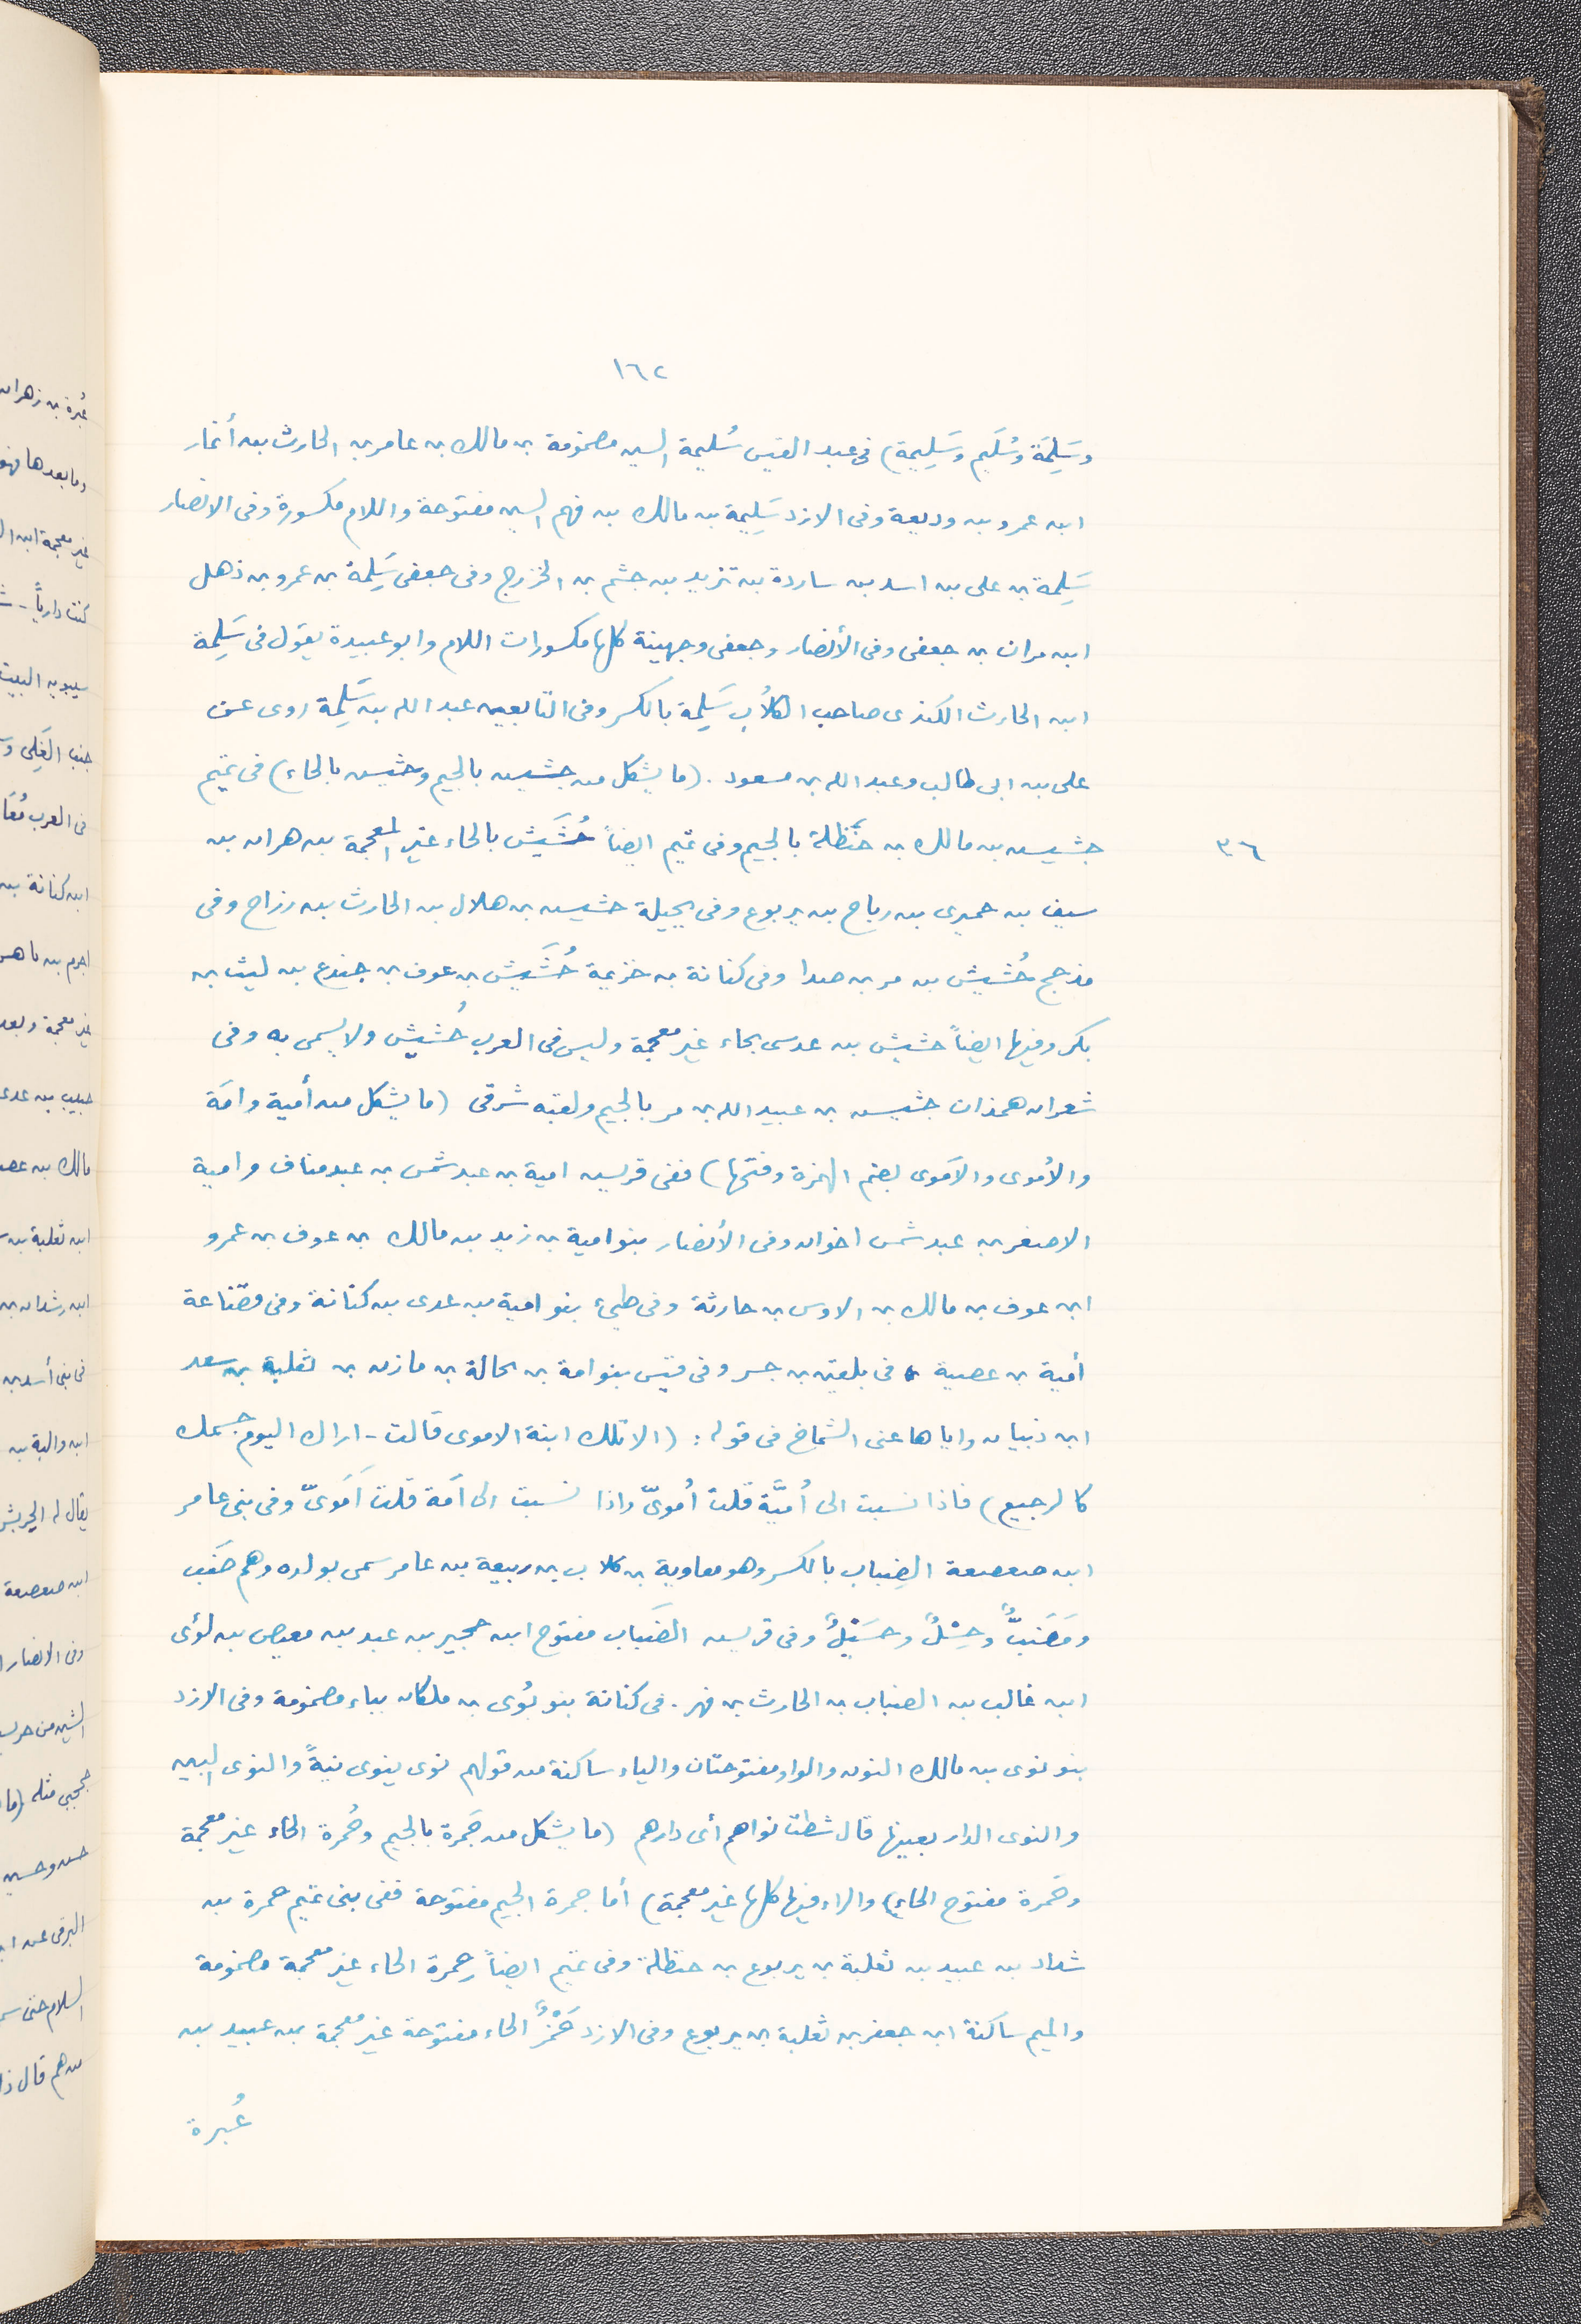 ١٦٢
وسَلِمَة وسُلَيم وسَلِيمة) فى عبد القيس سُليمة السين مضمومة بن مالك بن عامر بن الحارث بن أنمار
ابن عمرو بن وديعة وفى الازد سَلِيمة بن مالك بن فهم السين مفتوحة واللام مكسورة وفى الانصار
سَلِمة بن على بن اسد بن ساردة بن تزيد بن جشم بن الخزرج وفى جعفى سَلِمة بن عمرو بن ذهل
ابن مران بن جعفى وفى الأنصار وجعفى وجهينة كلها مكسورات اللام وابو عبيدة يقول فى سَلِمة
ابن الحارث الكندى صاحب الكلاُب سَلِمة بالكسر وفى التابعين عبد الله بن سَلِمة روى عن
على بن ابى طالب وعبد الله بن مسعود . (ما يشكل من جشيس بالجيم وحشيس بالحاء) فى تميم
٣٦
جشيس بن مالك بن حنظلة بالجيم وفى تميم ايضاً حُشَيش بالحاء غير المعجمة بن هران بن
سيف بن حميرى بن رباح بن يربوع وفى بجيلة حشيس بن هلال بن الحارث بن رزاح وفى
مذحج حُشيش بن مر بن صدا وفى كنانة بن خزيمة حُشَيش بن عوف بن جندع بن ليث بن
بكر وفيها ايضاً حشيش بن عدسى بحاء غير معجمة وليس فى العرب خُشيش ولا يسمى به وفى
شعراء همذان جشيس بن عبيد الله بن مر بالجيم ولقبه شرقى (ما يشكل من أمية وامَة
والأُموى والاَموى بضم الهمزة وفتحها) ففى قريس امية بن عبد شمس بن عبد مناف وامية
الاصغر بن عبد شمس اخوان وفى الأنصار بنو امية بن زيد بن مالك بن عوف بن عمرو
ابن عوف بن مالك بن الاوس بن حارثة وفى طيىء بنو امية بن عدى بن كنانة وفى قضاعة
أمية بن عصبة فى بلقين بن جسر وفى قيس بنو امة بن بجالة بن مازن بن ثعلبة بن سعد
ابن ذبيان واياها عنى الشماخ فى قوله : (الا تلك ابنة الاموى قالت - اراك اليوم جسمك
كالرجيع) فاذا نسبت الى أُميَّة قلت أُموىّ واذا نسبت الى اَمة قلت اَمَوىّ وفى بنى عامر
ابن صعصعة الضِباب بالكسر وهو معاوية بن كلاب بن ربيعة بن عامر سمى بولده وهم ضَب
ومَضَبٌّ وحِسْلٌ وحسَيْلٌ وفى قريس الضَباب مفتوح ابن حجير بن عبد بن معيص بن لؤى
ابن غالب بن الضباب بن الحارث بن فهر . فى كنانة بنو بُوى بن ملكان بباء مضمومة وفى الازد
بنو نوى بن مالك النون والواو مفتوحتان والياء ساكنة من قولهم نوى ينوى نيةً والنوى البين
والنوى الدار بعينها قال شطت نواهم أى دارهم (ما يشكل من جَمرة بالجيم وحُمرة الحاء غير معجمة
وحَمرة مفتوح الحاء) والراء فيها كلها غير معجمة) أما جمرة الجيم مفتوحة ففى بنى تميم جمرة بن
شداد بن عبيد بن ثعلبة بن يربوع بن حنظلة وفى تميم ايضاً حمرة الحاء غير معجمة مضمومة
والميم ساكنة ابن جعفر بن ثعلبة بن يربوع وفى الازد حَمْزٌ الحاء مفتوحة غير معجمة بن عبيد بن
عُبرة